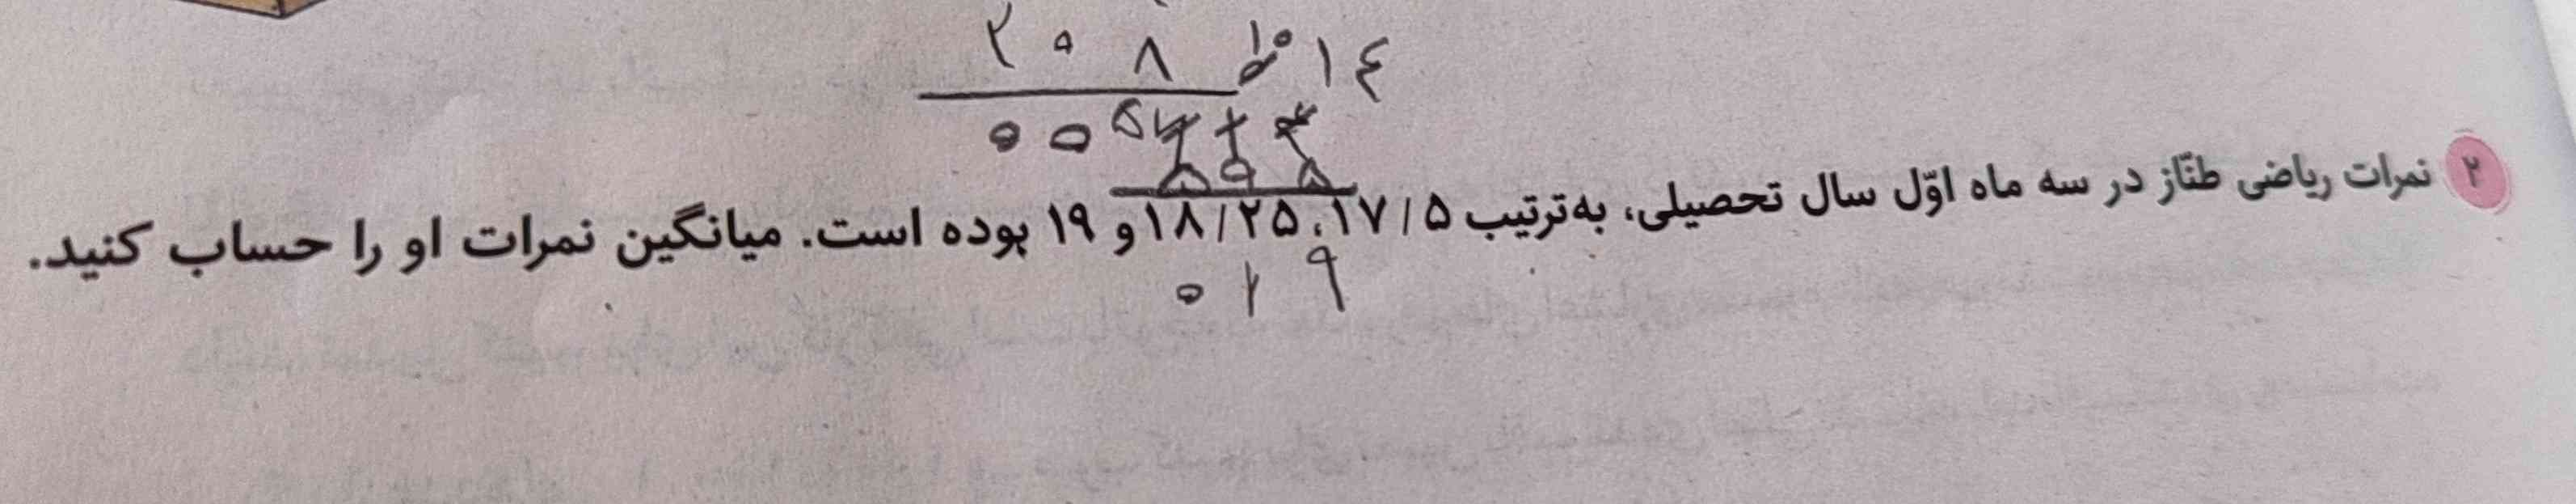 ۲ ۰ ۸ ۱۴
۰ ۰
۲ نمرات ریاضی طنّاز در سه ماه اوّل سال تحصیلی، به‌ترتیب ۱۷/۵، ۱۸/۲۵ و ۱۹ بوده است. میانگین نمرات او را حساب کنید.
۰ ۱ ۹